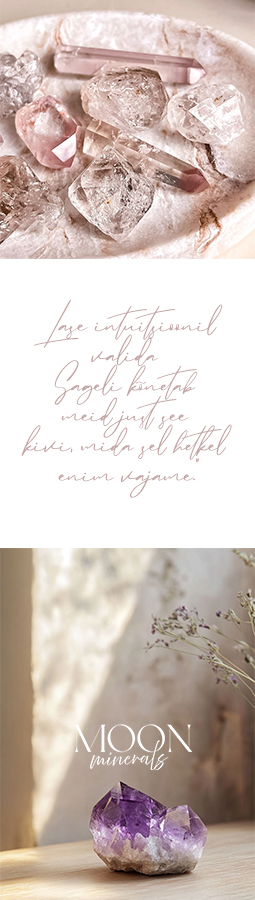 Lase intuitsioonil
valida
Sageli kõnetab
meid just see
kivi, mida sel hetkel
enim vajame.
MOON
minerals